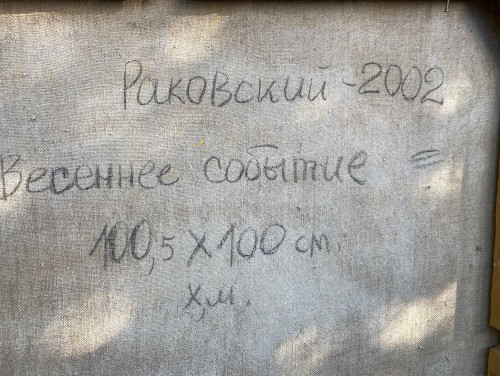 Раковский - 2002
Весеннее событие =
100,5 x 100 см.
х,м.